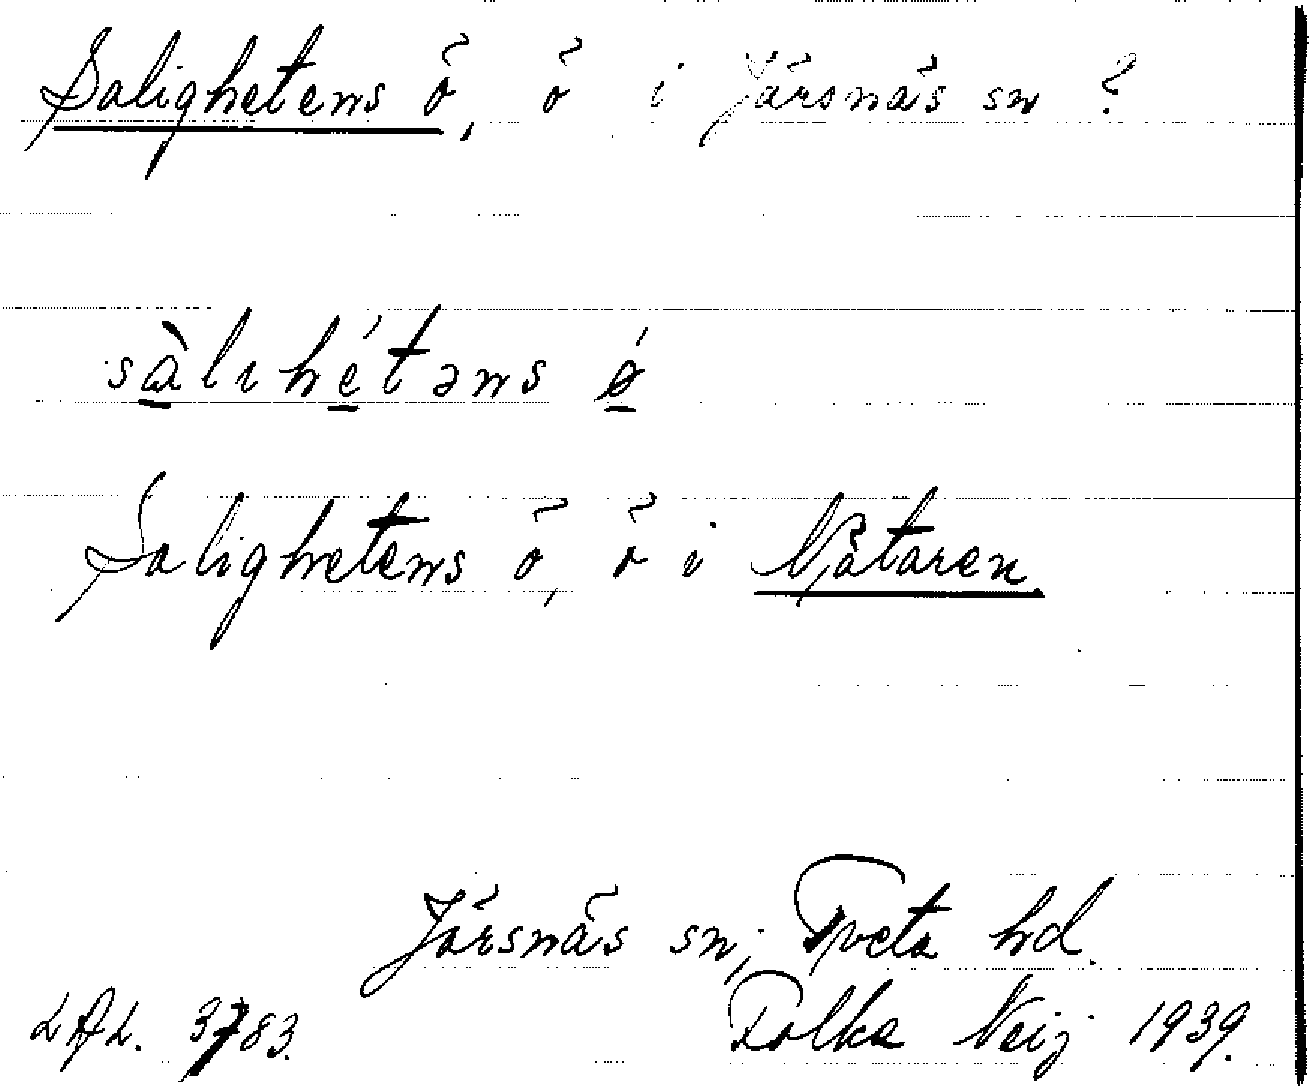 Salighetens ö, ö i Järsnäs sn ?
sàlıhétəns ǿ
Salighetens ö, ö i Nätaren.
Järsnäs sn; Tveta hd.
LAL. 3783. Folke Neij 1939.